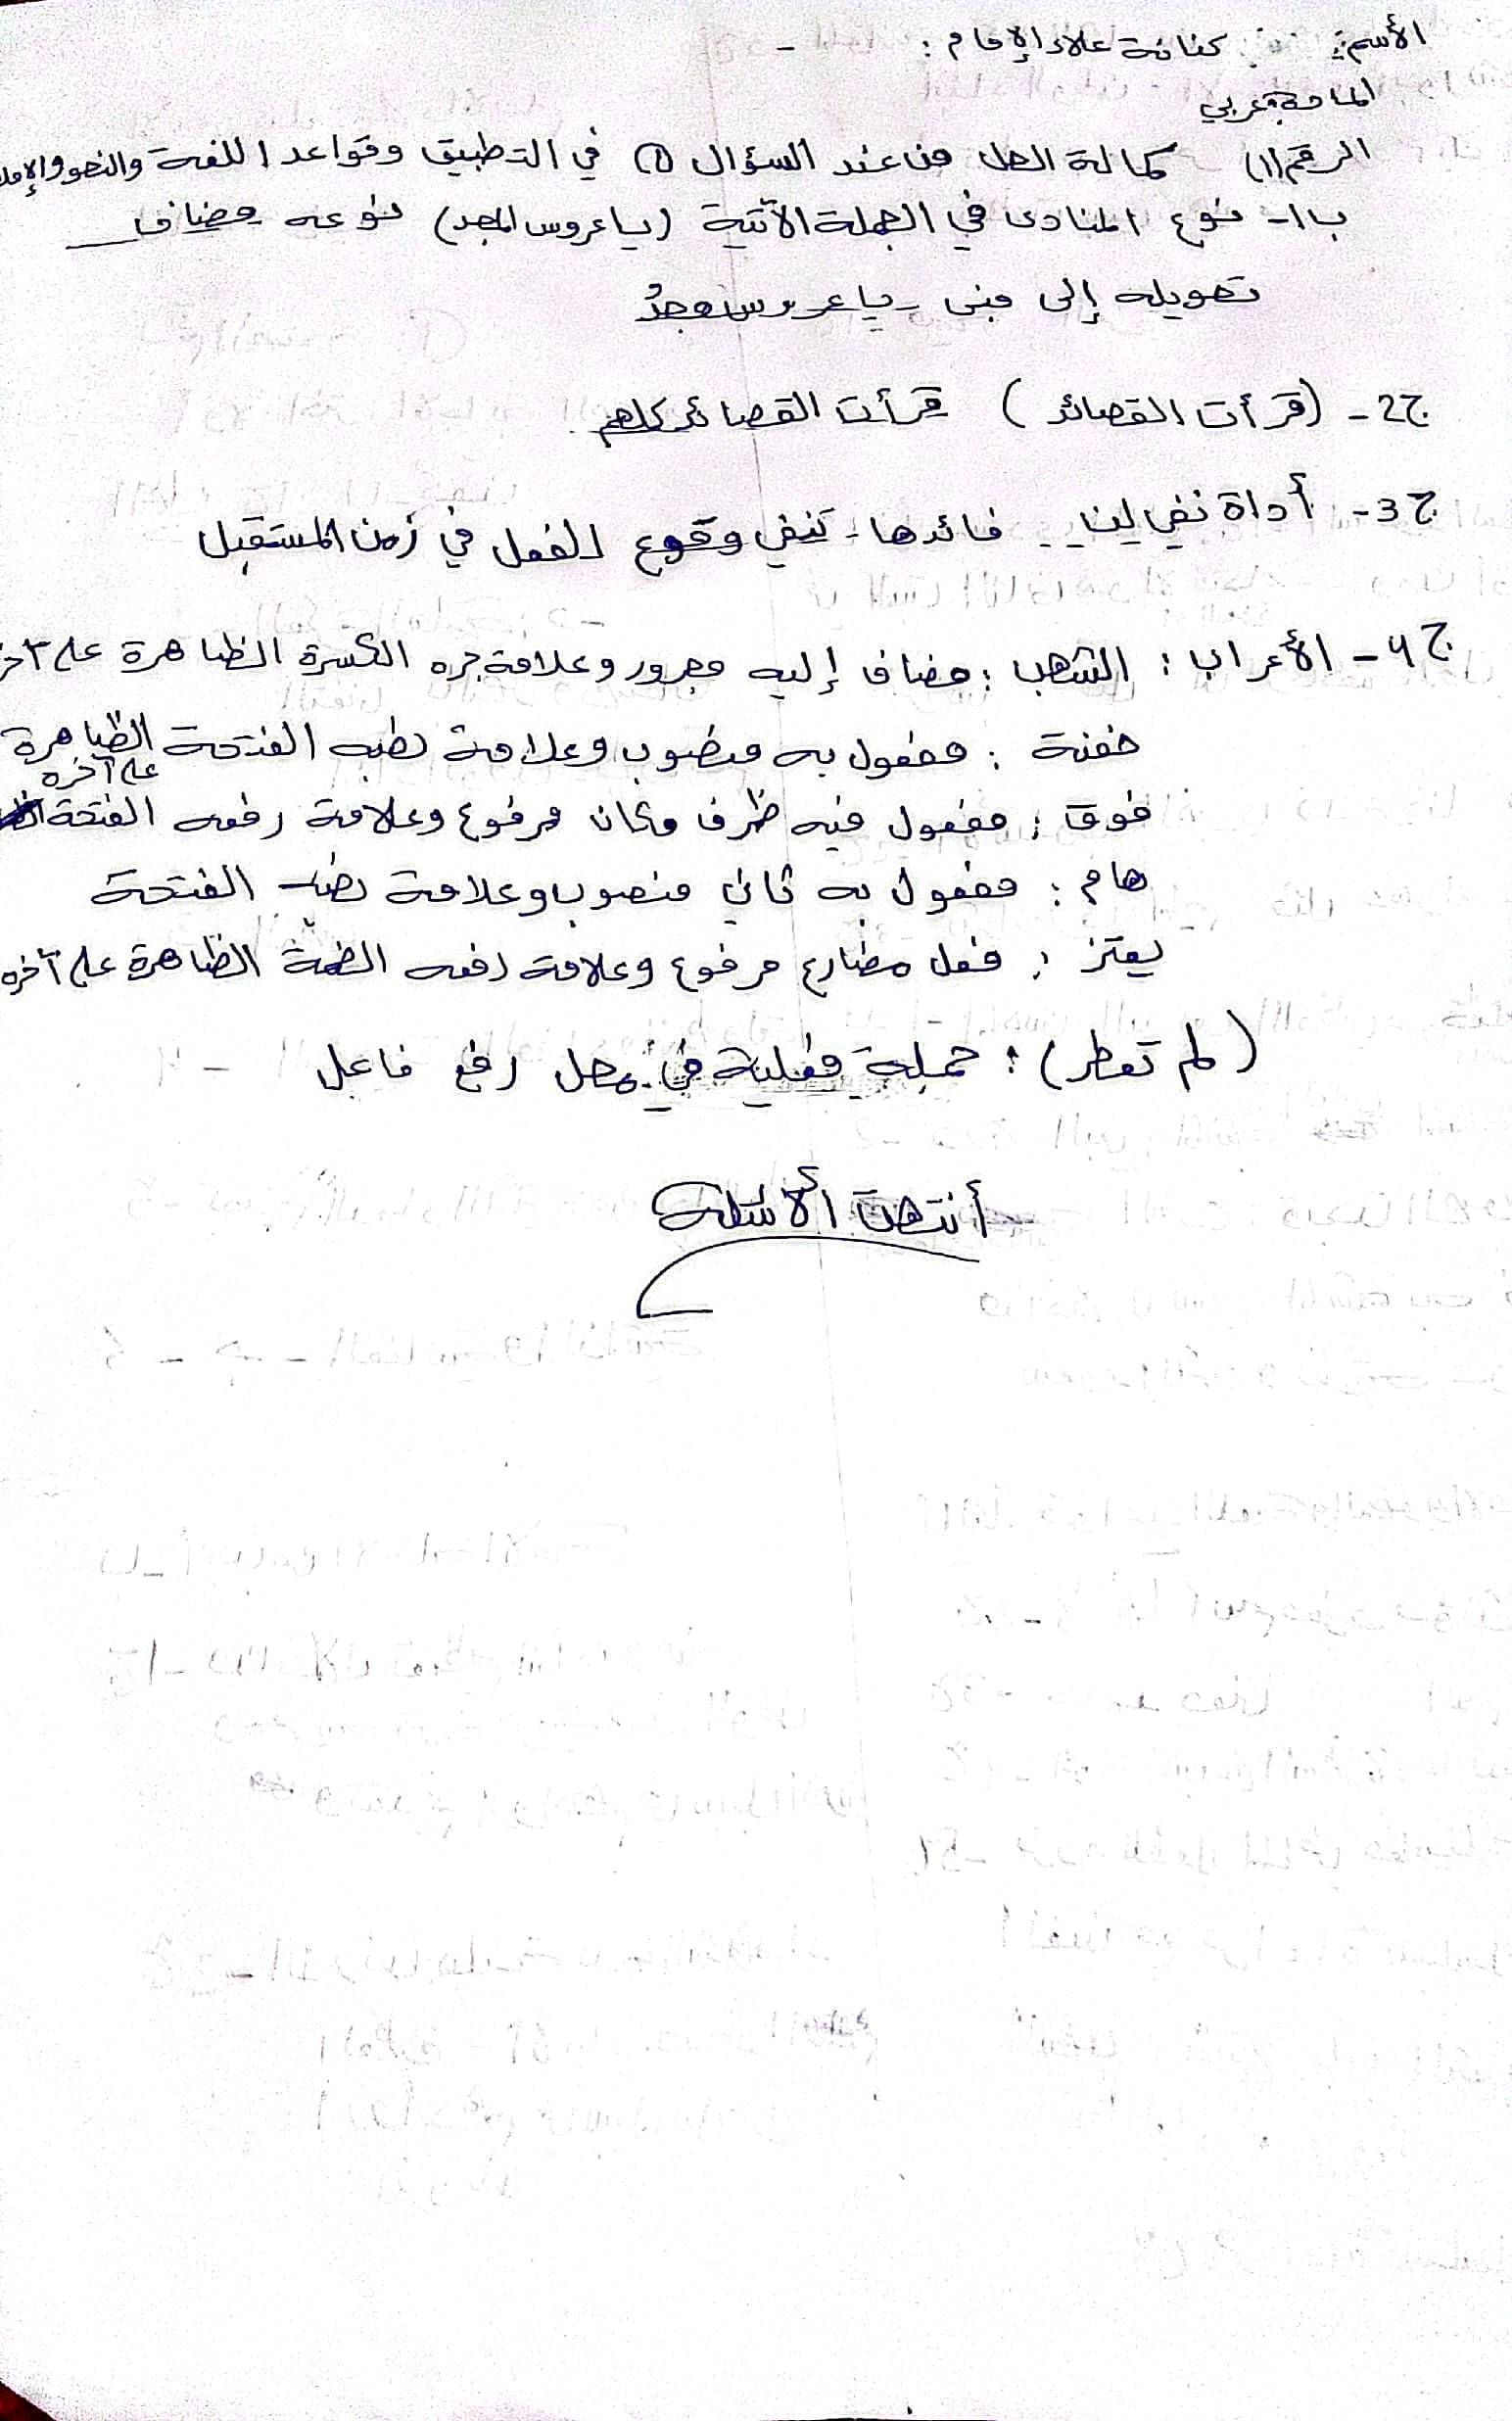 الأسم: كنانة علاء الإمام : -
المادة: عربي
الرقم (١) كمالة الحل من عند السؤال ① في التطبيق وقواعد اللغة والنحو والإملا
ب ١- نوع المنادى في الجملة الآتية (يا عروس المجد) نوعه مضاف
تحويله إلى مبني - يا عروس مجدُ
ج2- (قرأت القصائد) قرأت القصائد كلهم
ج3- أداة نفي لن فائدها - تنفي وقوع الفعل في زمن المستقبل
ج4- الأعراب : الشهب : مضاف إليه مجرور وعلامة جره الكسرة الظاهرة على آخر
خفنة : مفعول به منصوب وعلامة نصبه الفتحة الظاهرة
على آخره
فوق : مفعول فيه ظرف مكان مرفوع وعلامة رفعه الفتحة
هام : مفعول به ثاني منصوب وعلامة نصبه الفتحة
يعتز : فعل مضارع مرفوع وعلامة رفعه الضمة الظاهرة على آخره
(لم تعطر) : جملة فعلية في محل رفع فاعل
أنتهت الأسئلة